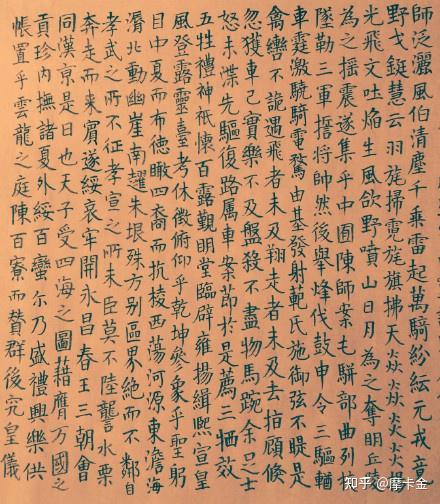 師泛灑風伯清塵千乘雷起萬騎紛紜元戎竟
野戈鋋慧云羽旄掃霓旌旗拂天焱焱炎炎揚
光飛文吐焰生風欱野噴山日月為之奪明丘陵
為之搖震遂集乎中囿陳師案屯駢部曲列校
隧勒三軍誓將帥然後舉烽伐鼓申令三驅輶
車霆激驍騎電騖由基發射範氏施御弦不睼
禽轡不詭遇飛者未及翔走者未及去指顧倏
忽獲車已實樂不及盤殺不盡物馬踠余足士
怒未渫先驅復路屬車案節於是薦三犧效
五牲禮神祇懷百露覲明堂臨辟雍揚緝熙宣皇
風登露靈臺考休徵俯仰乎乾坤參象乎聖躬
目中夏而布德瞰四裔而抗棱西蕩河源東澹海
漘北動幽崖南趯朱垠殊方別區界絕而不鄰自
孝武之所不征孝宣之所未臣莫不陸讋水栗
奔走而來賓遂綏哀牢開永昌春王三朝會
同漢京是日也天子受四海之圖藉膺万國之
貢珍內撫諸夏外綏百蠻尔乃盛禮興樂供
帳置乎雲龍之庭陳百寮而贊群後究皇儀
知乎 @摩卡金